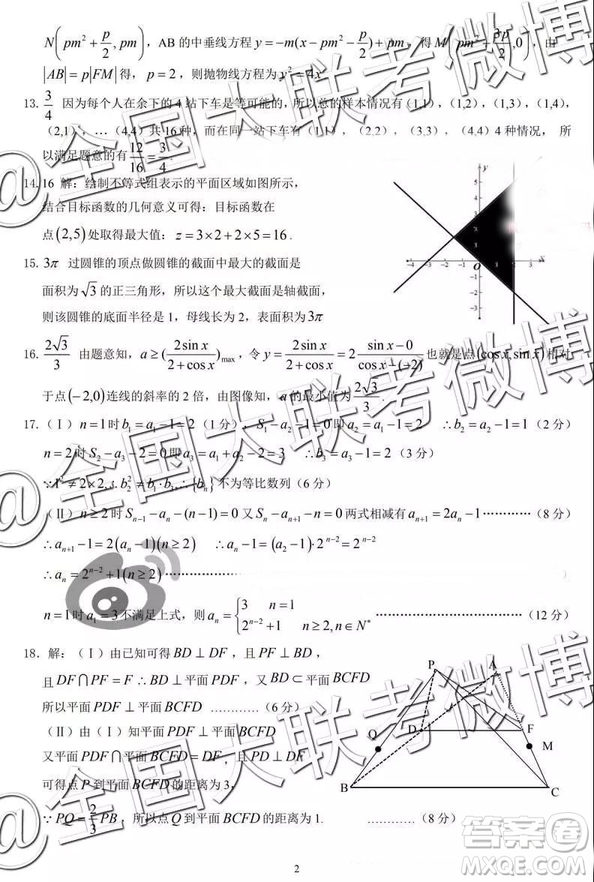 N(pm²+p/2, pm), AB 的中垂线方程 y=−m(x−pm²−p/2)+pm, 得 M(pm²+3p/2, 0), 由
|AB|=p|FM| 得, p=2, 则抛物线方程为 y²=4x
13. 3/4 因为每个人在余下的 4 站下车是等可能的, 所以总的样本情况有 (1,1), (1,2), (1,3), (1,4),
(2,1), … (4,4) 共 16 种, 而在同一站下车有 (1,1), (2,2), (3,3), (4,4) 4 种情况, 所
以满足题意的有 12/16=3/4.
14. 16 解: 绘制不等式组表示的平面区域如图所示,
结合目标函数的几何意义可得: 目标函数在
点 (2,5) 处取得最大值: z=3×2+2×5=16.
15. 3π 过圆锥的顶点做圆锥的截面中最大的截面是
面积为 √3 的正三角形, 所以这个最大截面是轴截面,
则该圆锥的底面半径是 1, 母线长为 2, 表面积为 3π
16. 2√3/3 由题意知, a≥(2sin x/(2+cos x))max, 令 y=2sin x/(2+cos x)=2 (sin x−0)/(cos x−(−2)) 也就是点 (cos x, sin x) 相对
于点 (−2,0) 连线的斜率的 2 倍, 由图像知, a 的最小值为 2√3/3.
17. (Ⅰ) n=1 时 b₁=a₁−1=2 (1 分), S₁−a₂=0 即 a₂=a₁=3 ∴b₂=a₂−1=2 (2 分)
n=2 时 S₂−a₃−2=0 即 a₃=a₁+a₂−2=3 ∴b₃=a₃−1=2 (3 分)
≠2×2, ∴b₂²≠b₁·b₃, ∴{bₙ} 不为等比数列 (6 分)
(Ⅱ) n≥2 时 Sₙ₋₁−aₙ−(n−1)=0 又 Sₙ−aₙ₊₁−n=0 两式相减有 aₙ₊₁=2aₙ−1 ············ (8 分)
∴aₙ₊₁−1=2(aₙ−1)(n≥2) ∴aₙ−1=(a₂−1)·2ⁿ⁻²=2ⁿ⁻²⁺¹
∴aₙ=2ⁿ⁻²+1(n≥2) ············
n=1 时 a₁=3 不满足上式, 则 aₙ={3 n=1; 2ⁿ⁻²+1 n≥2, n∈N* ············ (12 分)
18. 解: (Ⅰ) 由已知可得 BD⊥DF, 且 PF⊥BD,
且 DF∩PF=F ∴BD⊥平面 PDF, 又 BD⊂平面 BCFD
所以平面 PDF⊥平面 BCFD ............ (6 分)
(Ⅱ) 由 (Ⅰ) 知平面 PDF⊥平面 BCFD
又平面 PDF∩平面 BCFD=DF, 且 PD⊥DF
可得点 P 到平面 BCFD 的距离为 3,
∵PQ=2/3 PB, 所以点 Q 到平面 BCFD 的距离为 1. ............ (8 分)
y
x
O
P
A
Q
D
F
M
B
C
2
@全国大联考微博
答案圈
MXQE.COM